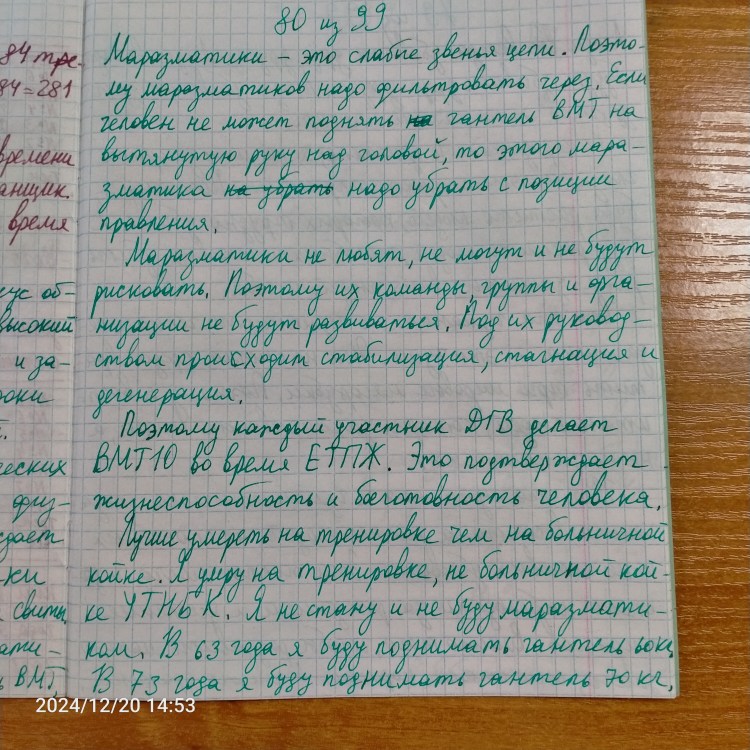 80 из 99
84 тре-
84=281
времени
анщик.
время
сус об-
высокий
и за-
роки
т.
ческих
физ-
сдает
ки
свитк
ати-
ь ВМТ.
Маразматики – это слабые звенья цепи. Поэто-
му маразматиков надо фильтровать через. Если
человек не может поднять на гантель ВМТ на
вытянутую руку над головой, то этого мара-
зматика на убрать надо убрать с позиции
правления.
Маразматики не любят, не могут и не будут
рисковать. Поэтому их команды, группы и орга-
низации не будут развиваться. Под их руковод-
ством происходит стабилизация, стагнация и
дегенерация.
Поэтому каждый участник ДГВ делает
ВМТ10 во время ЕТПЖ. Это подтверждает
жизнеспособность и боеготовность человека.
Лучше умереть на тренировке чем на больничной
койке. Я умру на тренировке, не больничной кой-
ке УТНБК. Я не стану и не буду маразмати-
ком. В 63 года я буду поднимать гантель 60кг.
В 73 года я буду поднимать гантель 70 кг.
2024/12/20 14:53